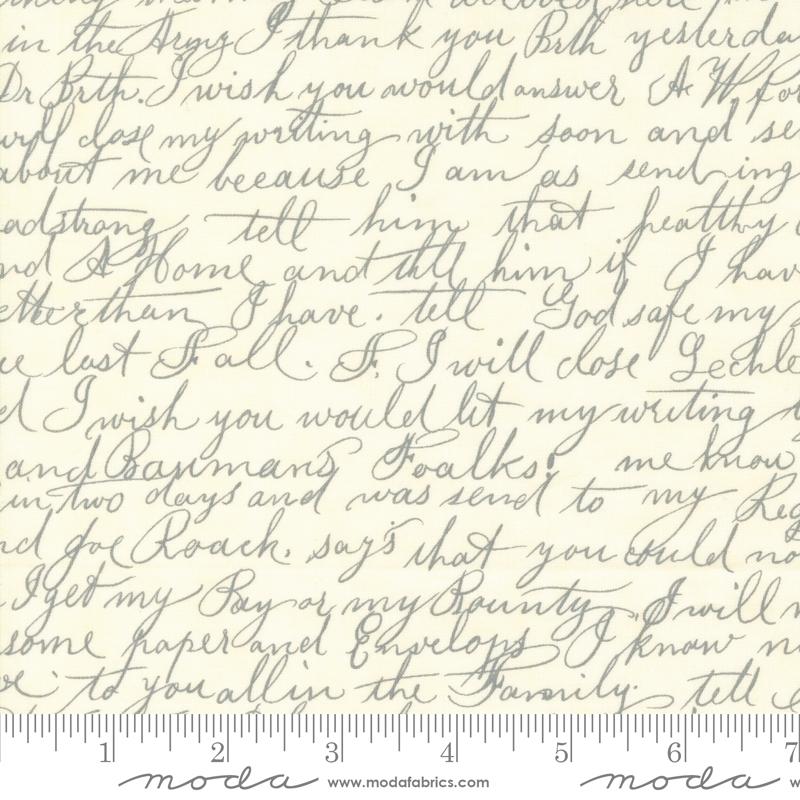 in the Army I thank you Brth yesterda
Dr Brth. I wish you would answer A W. for
will close my writing with soon and se
about me because I am as send ing
adstrong tell him that healthy
nd A Home and tell him if I hav
etter than I have. tell God safe my
ue last Fall. F. I will close Lechle
d I wish you would let my writing
and Baumans Foalks! me know
in two days and was send to my Reg
nd Joe Roack. say's that you could no
I get my Pay or my Bounty. I will
some paper and Envelops I know n
to you all in the Familiy. tell
1 2 3 4 5 6 7
moda www.modafabrics.com moda w